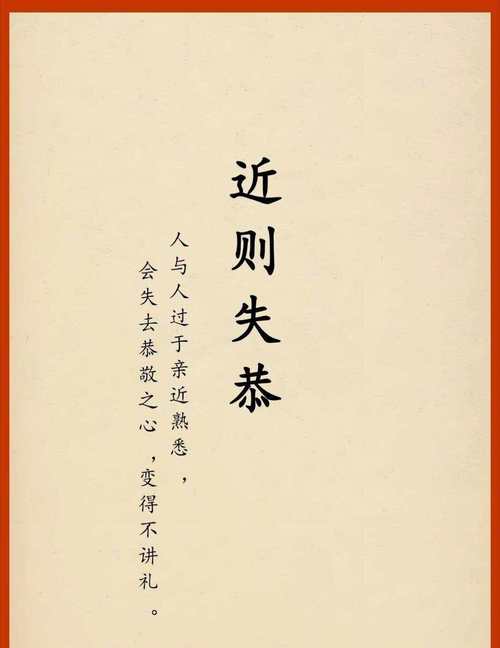 近则失恭
人与人过于亲近熟悉，
会失去恭敬之心，变得不讲礼。